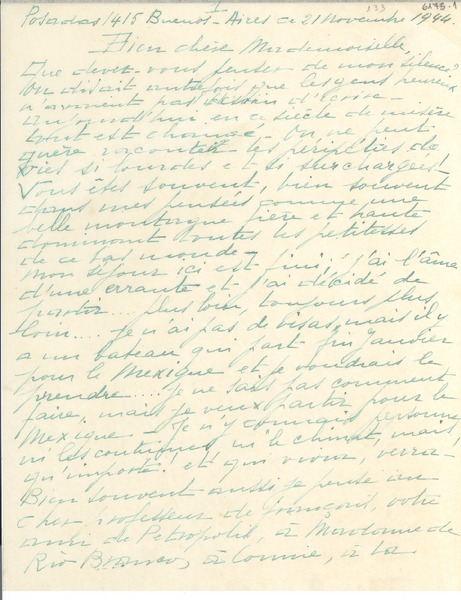 I
133 6145-1
Posadas 1415 Buenos-Aires ce 21 Novembre 1944.
Bien chère Mademoiselle,
Que devez-vous penser de mon silence?
On disait autrefois que les gens heureux
n'avaient pas besoin d'écrire -
Aujourd'hui en ce siècle de misère
tout est changé - On ne peut
guère raconter les péripéties de
vies si lourdes et si surchargées!
Vous êtes souvent, bien souvent
dans mes pensées comme une
belle montagne fière et haute
dominant toutes les petitesses
de ce bas monde -
Mon séjour ici est fini, j'ai l'âme
d'une errante et j'ai décidé de
partir... plus loin, toujours plus
loin... Je n'ai pas de visas, mais il y
a un bateau qui part fin Janvier
pour le Mexique et je voudrais le
prendre.... Je ne sais pas comment
faire, mais je veux partir pour le
Mexique - Je n'y connais personne
ni les coutumes, ni le climat, mais
qu'importe! et qui vivra, verra -
Bien souvent aussi je pense au
cher professeur de français, votre
ami de Petropolis, à Madame de
Rio Branco, à Connie, à la